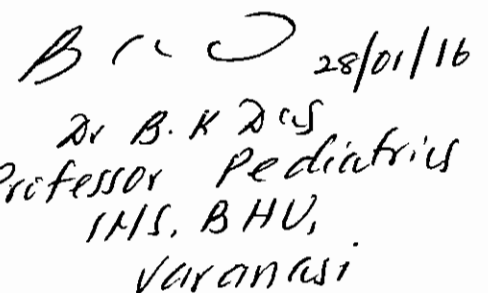 28/01/16
Dr B. K Das
Professor Pediatrics
IMS, BHU,
Varanasi